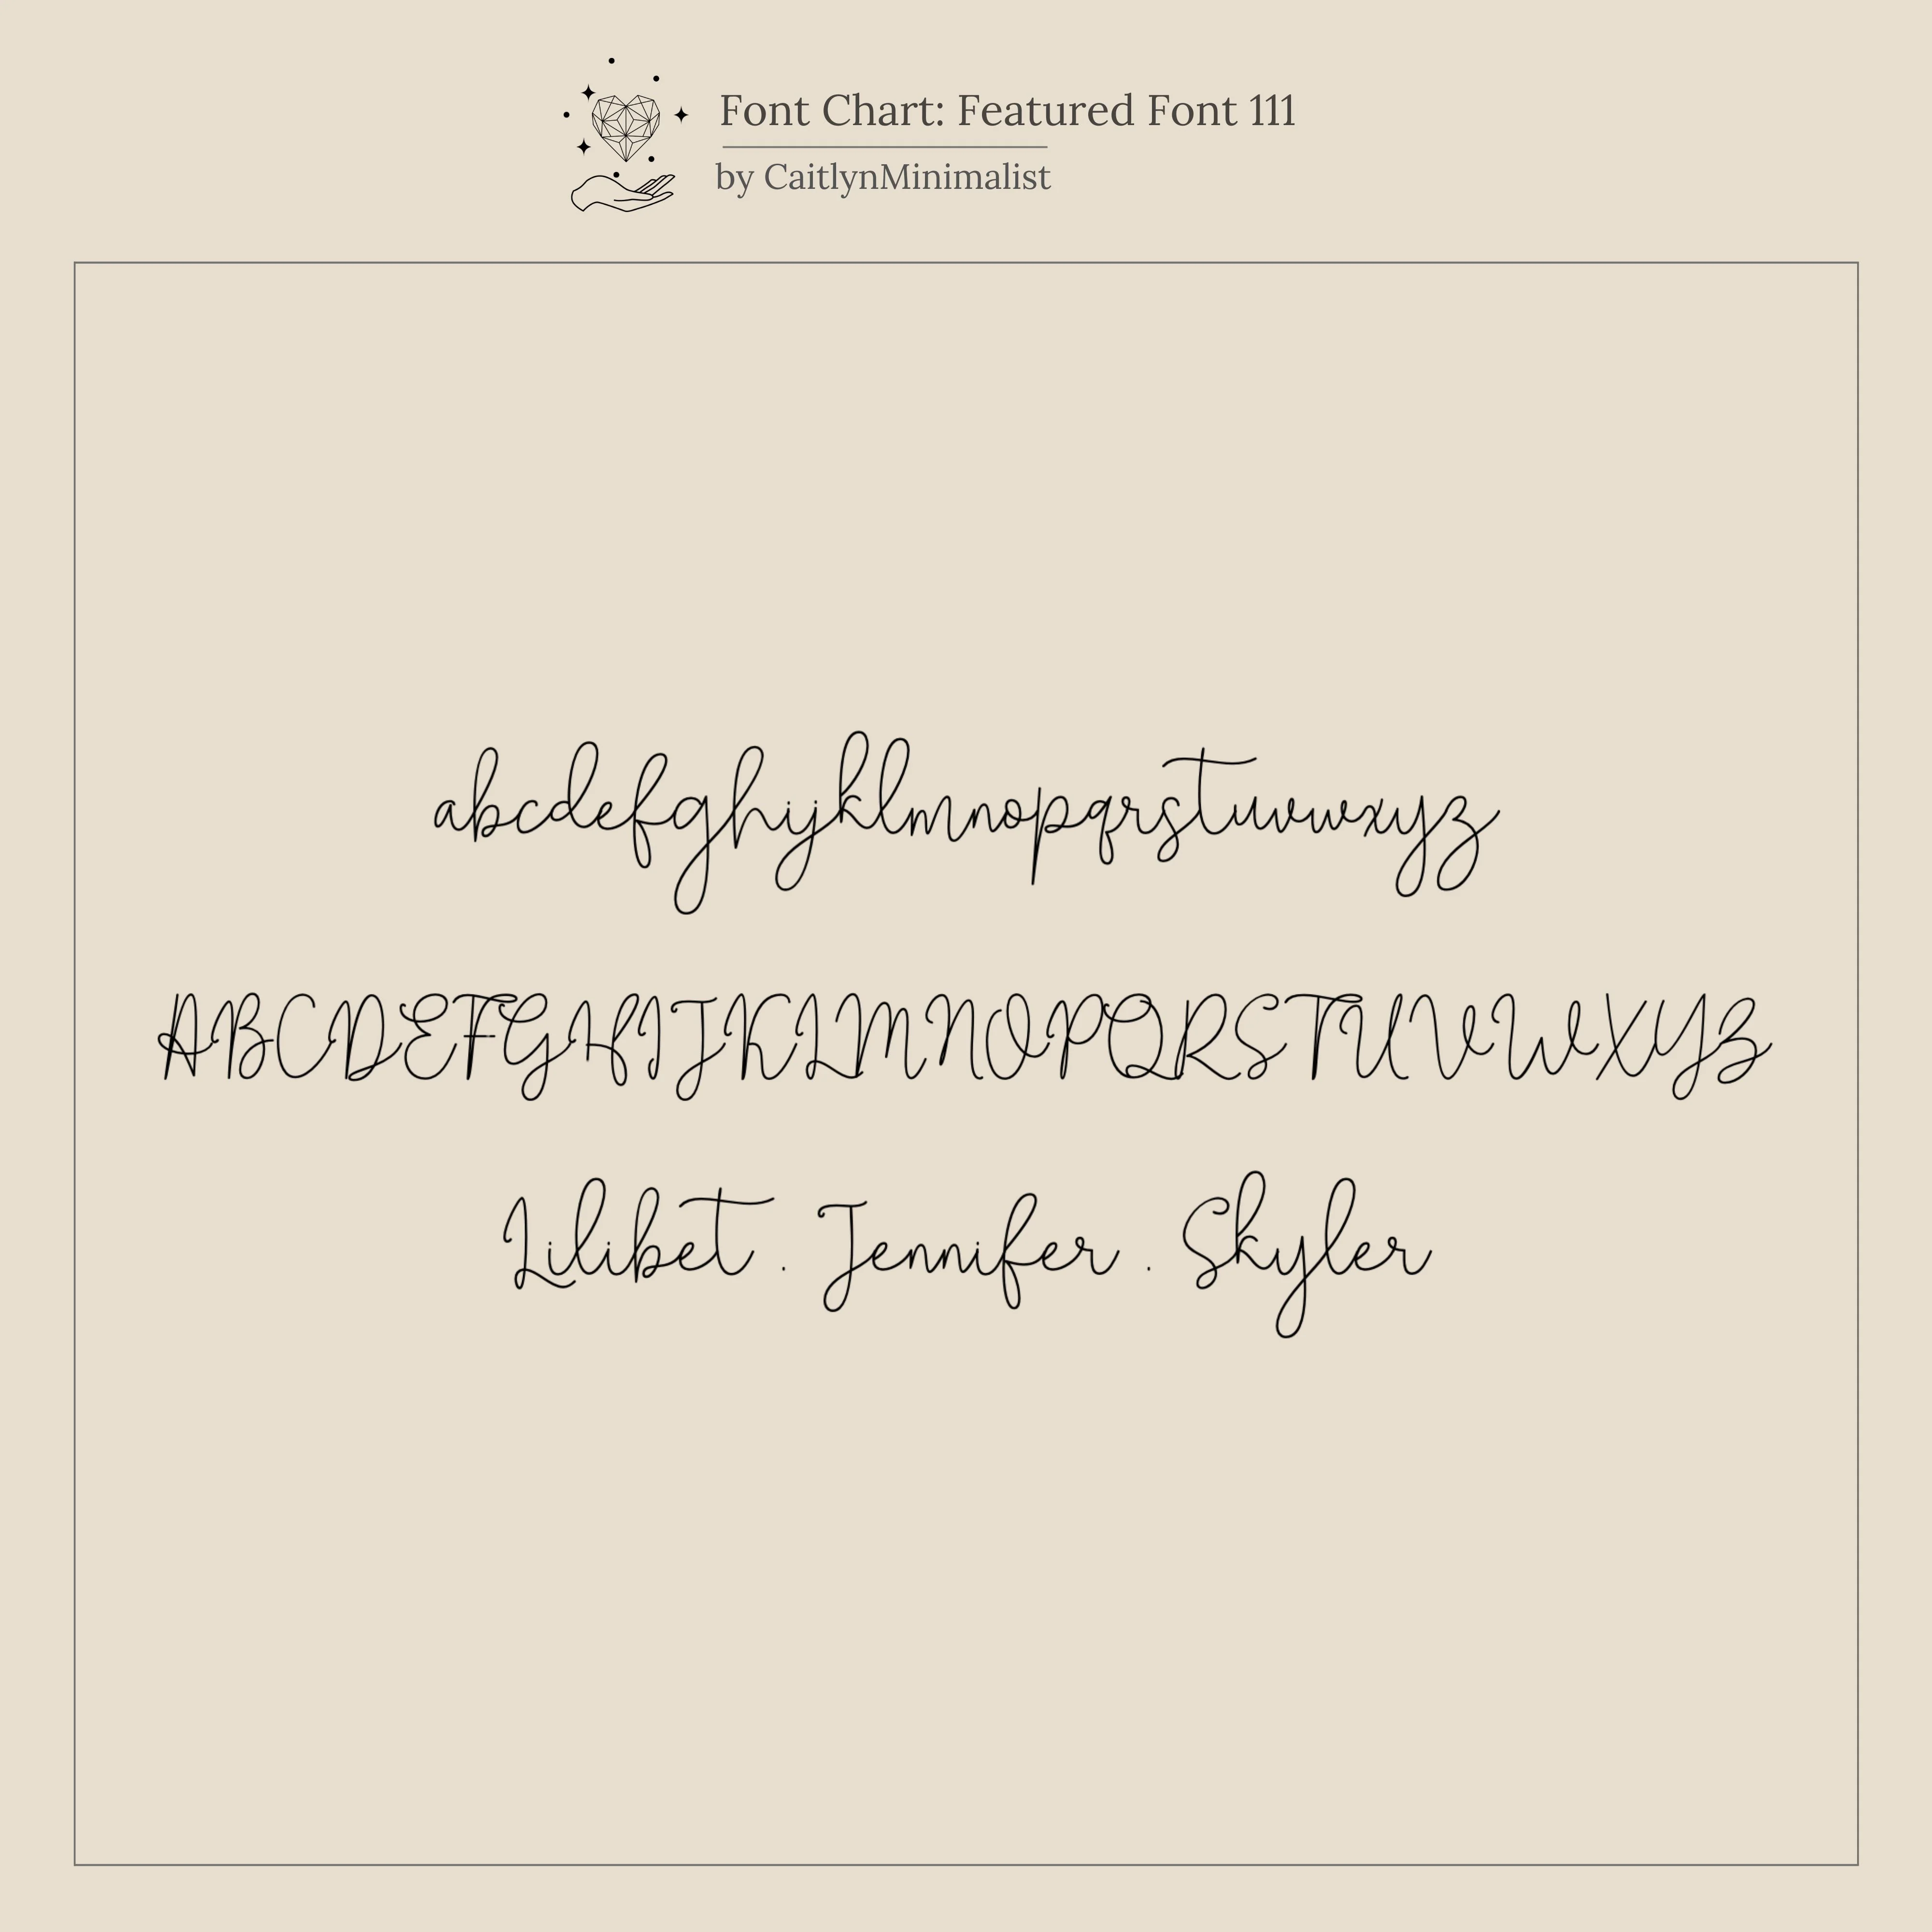 Font Chart: Featured Font 111
by CaitlynMinimalist
abcdefghijklmnopqrstuvwxyz
ABCDEFGHIJKLMNOPQRSTUVWXYZ
Lilibet . Jennifer . Skyler